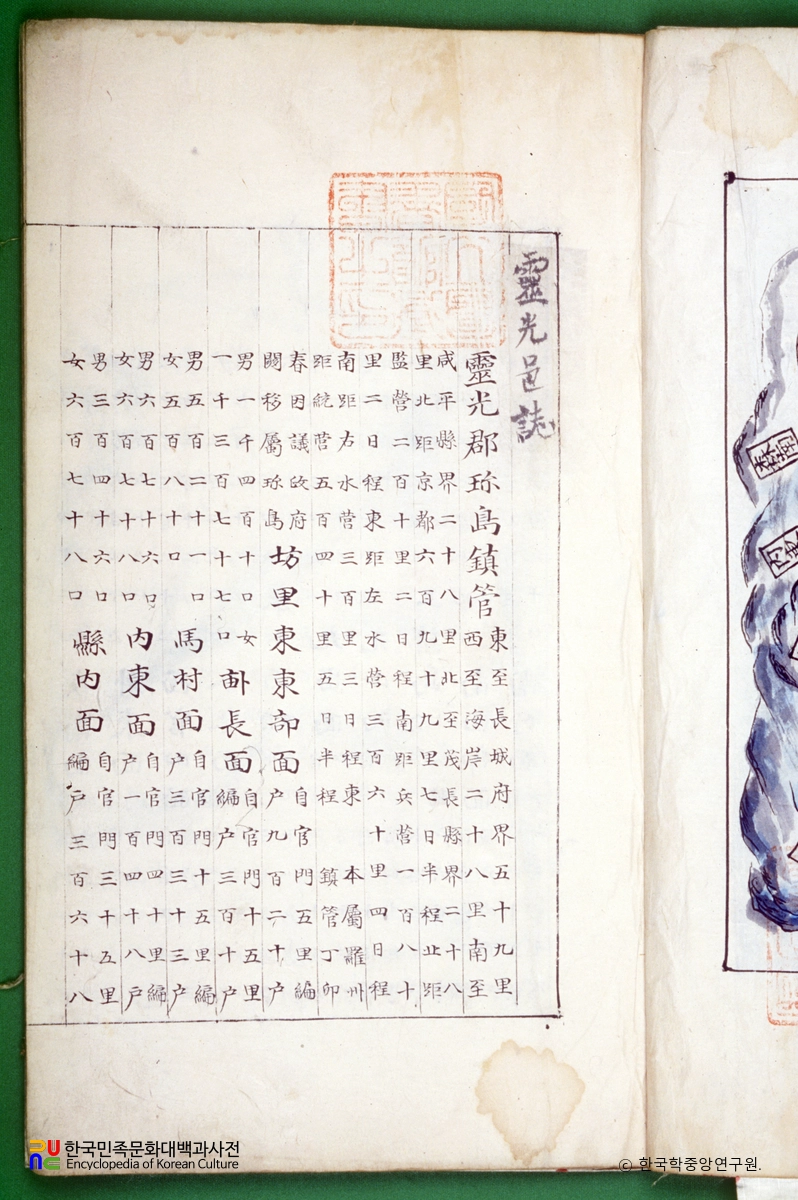 靈光邑誌
靈光郡珎島鎮管
東至長城府界五十九里
西至海岸二十八里南至
咸平縣界二十八里北至茂長縣界二十八
里北距京都六百九十九里七日半程北距
監營二百十里二日程南距兵營一百八十
里二日程東距左水營三百六十里四日程
南距右水營三百里三日程東 本屬羅州
距統營五百四十里五日半程 鎮管丁卯
春因議政府
關移屬珎島
坊里東東部面
自官門五里編
户九百二十户
男一千四百十口女
一千三百七十七口
長面
自官門十五里
編户三百十户
男五百二十一口
女五百八十口
馬村面
自官門十五里編
户三百三十三户
男六百七十六口
女六百七十八口
內東面
自官門四十里編
户一百四十八户
男三百四十六口
女六百七十八口
縣內面
自官門三十五里
編户三百六十八
한국민족문화대백과사전
Encyclopedia of Korean Culture
© 한국학중앙연구원.